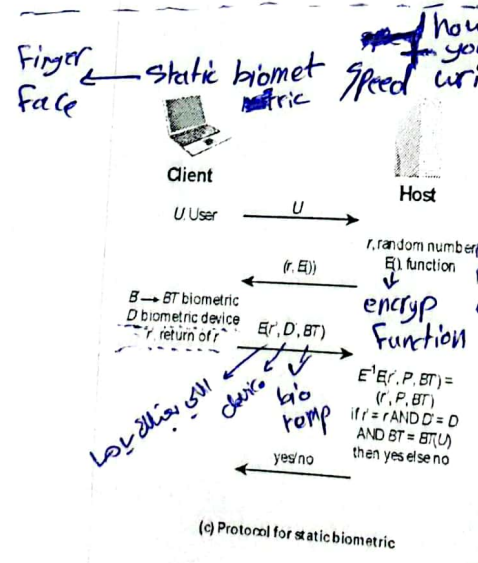 Finger
Face
static biomet
tric
speed
how
you
wri
Client
Host
U, User
U
r, random number
E(), function
(r, E())
encryp
function
B → BT biometric
D biometric device
r', return of r
E(r', D', BT')
device
bio
temp
E⁻¹E(r', P', BT') =
(r', P', BT')
if r' = r AND D' = D
AND BT' = BT(U)
then yes else no
yes/no
(c) Protocol for static biometric